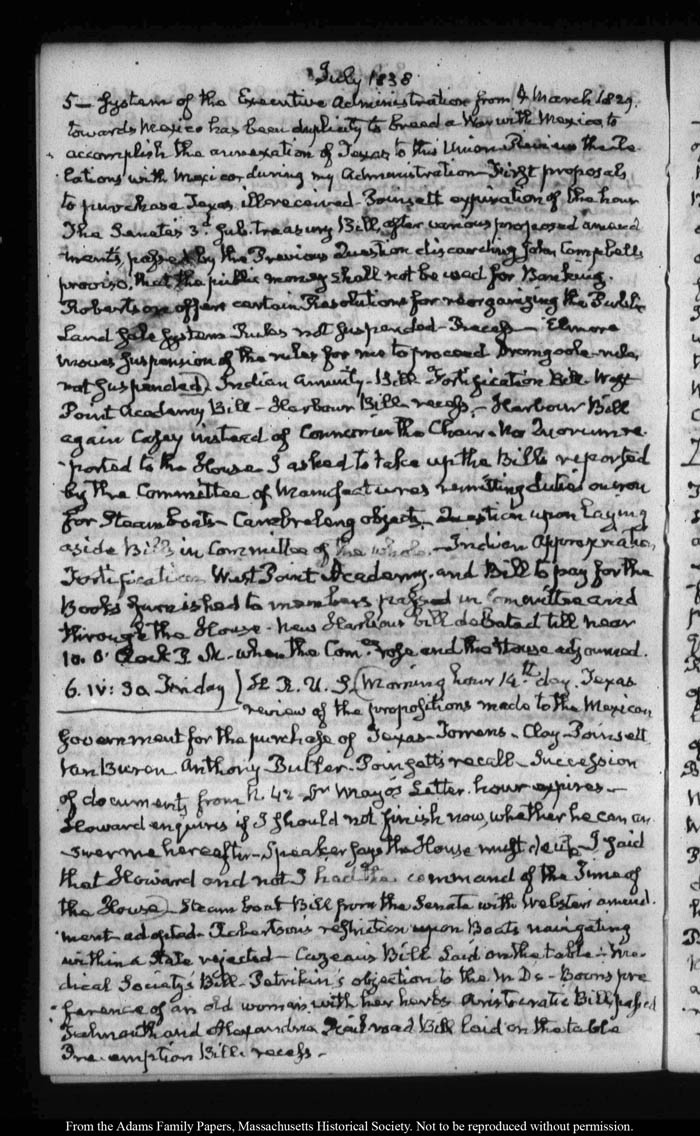 July 1838
5— System of the Executive Administration from 4 March 1829
towards Mexico has been duplicity to breed a War with Mexico to
accomplish the annexation of Texas to this Union— Review the Re
lations with Mexico during my Administration— First proposals
to purchase Texas ill received— Poinsett expiration of the hour
The Senate's 3d. Sub-treasury Bill, after various proposed amend
ments, passed by the Previous Question discarding John Campbells
proviso, that the public money shall not be used for Banking.
Robertson offers certain Resolutions for reorganizing the Public
Land Sale System Rules not suspended— Recess— Elmore
moves suspension of the rules for me to proceed Dromgoole rules
not suspended) Indian Annuity— Bill Fortification Bill. West
Point Academy Bill— Harbour Bill recess.— Harbour Bill
again Casey instead of Connor in the Chair. No Quorum re
ported to the House I asked to take up the Bills reported
by the Committee of Manufactures remitting duties on iron
for Steam boats— Cambreleng objects— Question upon laying
aside Bills in Committee of the whole.— Indian Appropriation
Fortification West Point Academy. and Bill to pay for the
Books furnished to members passed in Committee and
through the House— New Harbour bill debated till near
10. O'Clock P. M.— when the Comee. rose and the House adjourned.
6. IV: 30 Friday) H. R. U. S. (Morning hour 14th. day. Texas
review of the propositions made to the Mexican
Government for the purchase of Texas— Torrens— Clay— Poinsett
Van Buren Anthony Butler. Poinsetts recall— Succession
of documents from N. 42 Dr Mayo's Letter. hour expires—
Howard enquires if I should not finish now, whether he can an
swer me hereafter— Speaker says the House must decide— I said
that Howard and not I had the command of the Time of
the House) Steam boat Bill from the Senate with Websters amend
ment adopted— Robertsons restriction upon Boats navigating
within a State rejected— Cazeau's Bill laid on the table— Me
dical Society's Bill— Petrikin's objection to the M Ds— Boons pre
ference of an old woman with her herbs— Aristocratic Bill passed
Falmouth and Alexandria Railroad Bill laid on the table
Pre-emption Bill. recess—
From the Adams Family Papers, Massachusetts Historical Society. Not to be reproduced without permission.